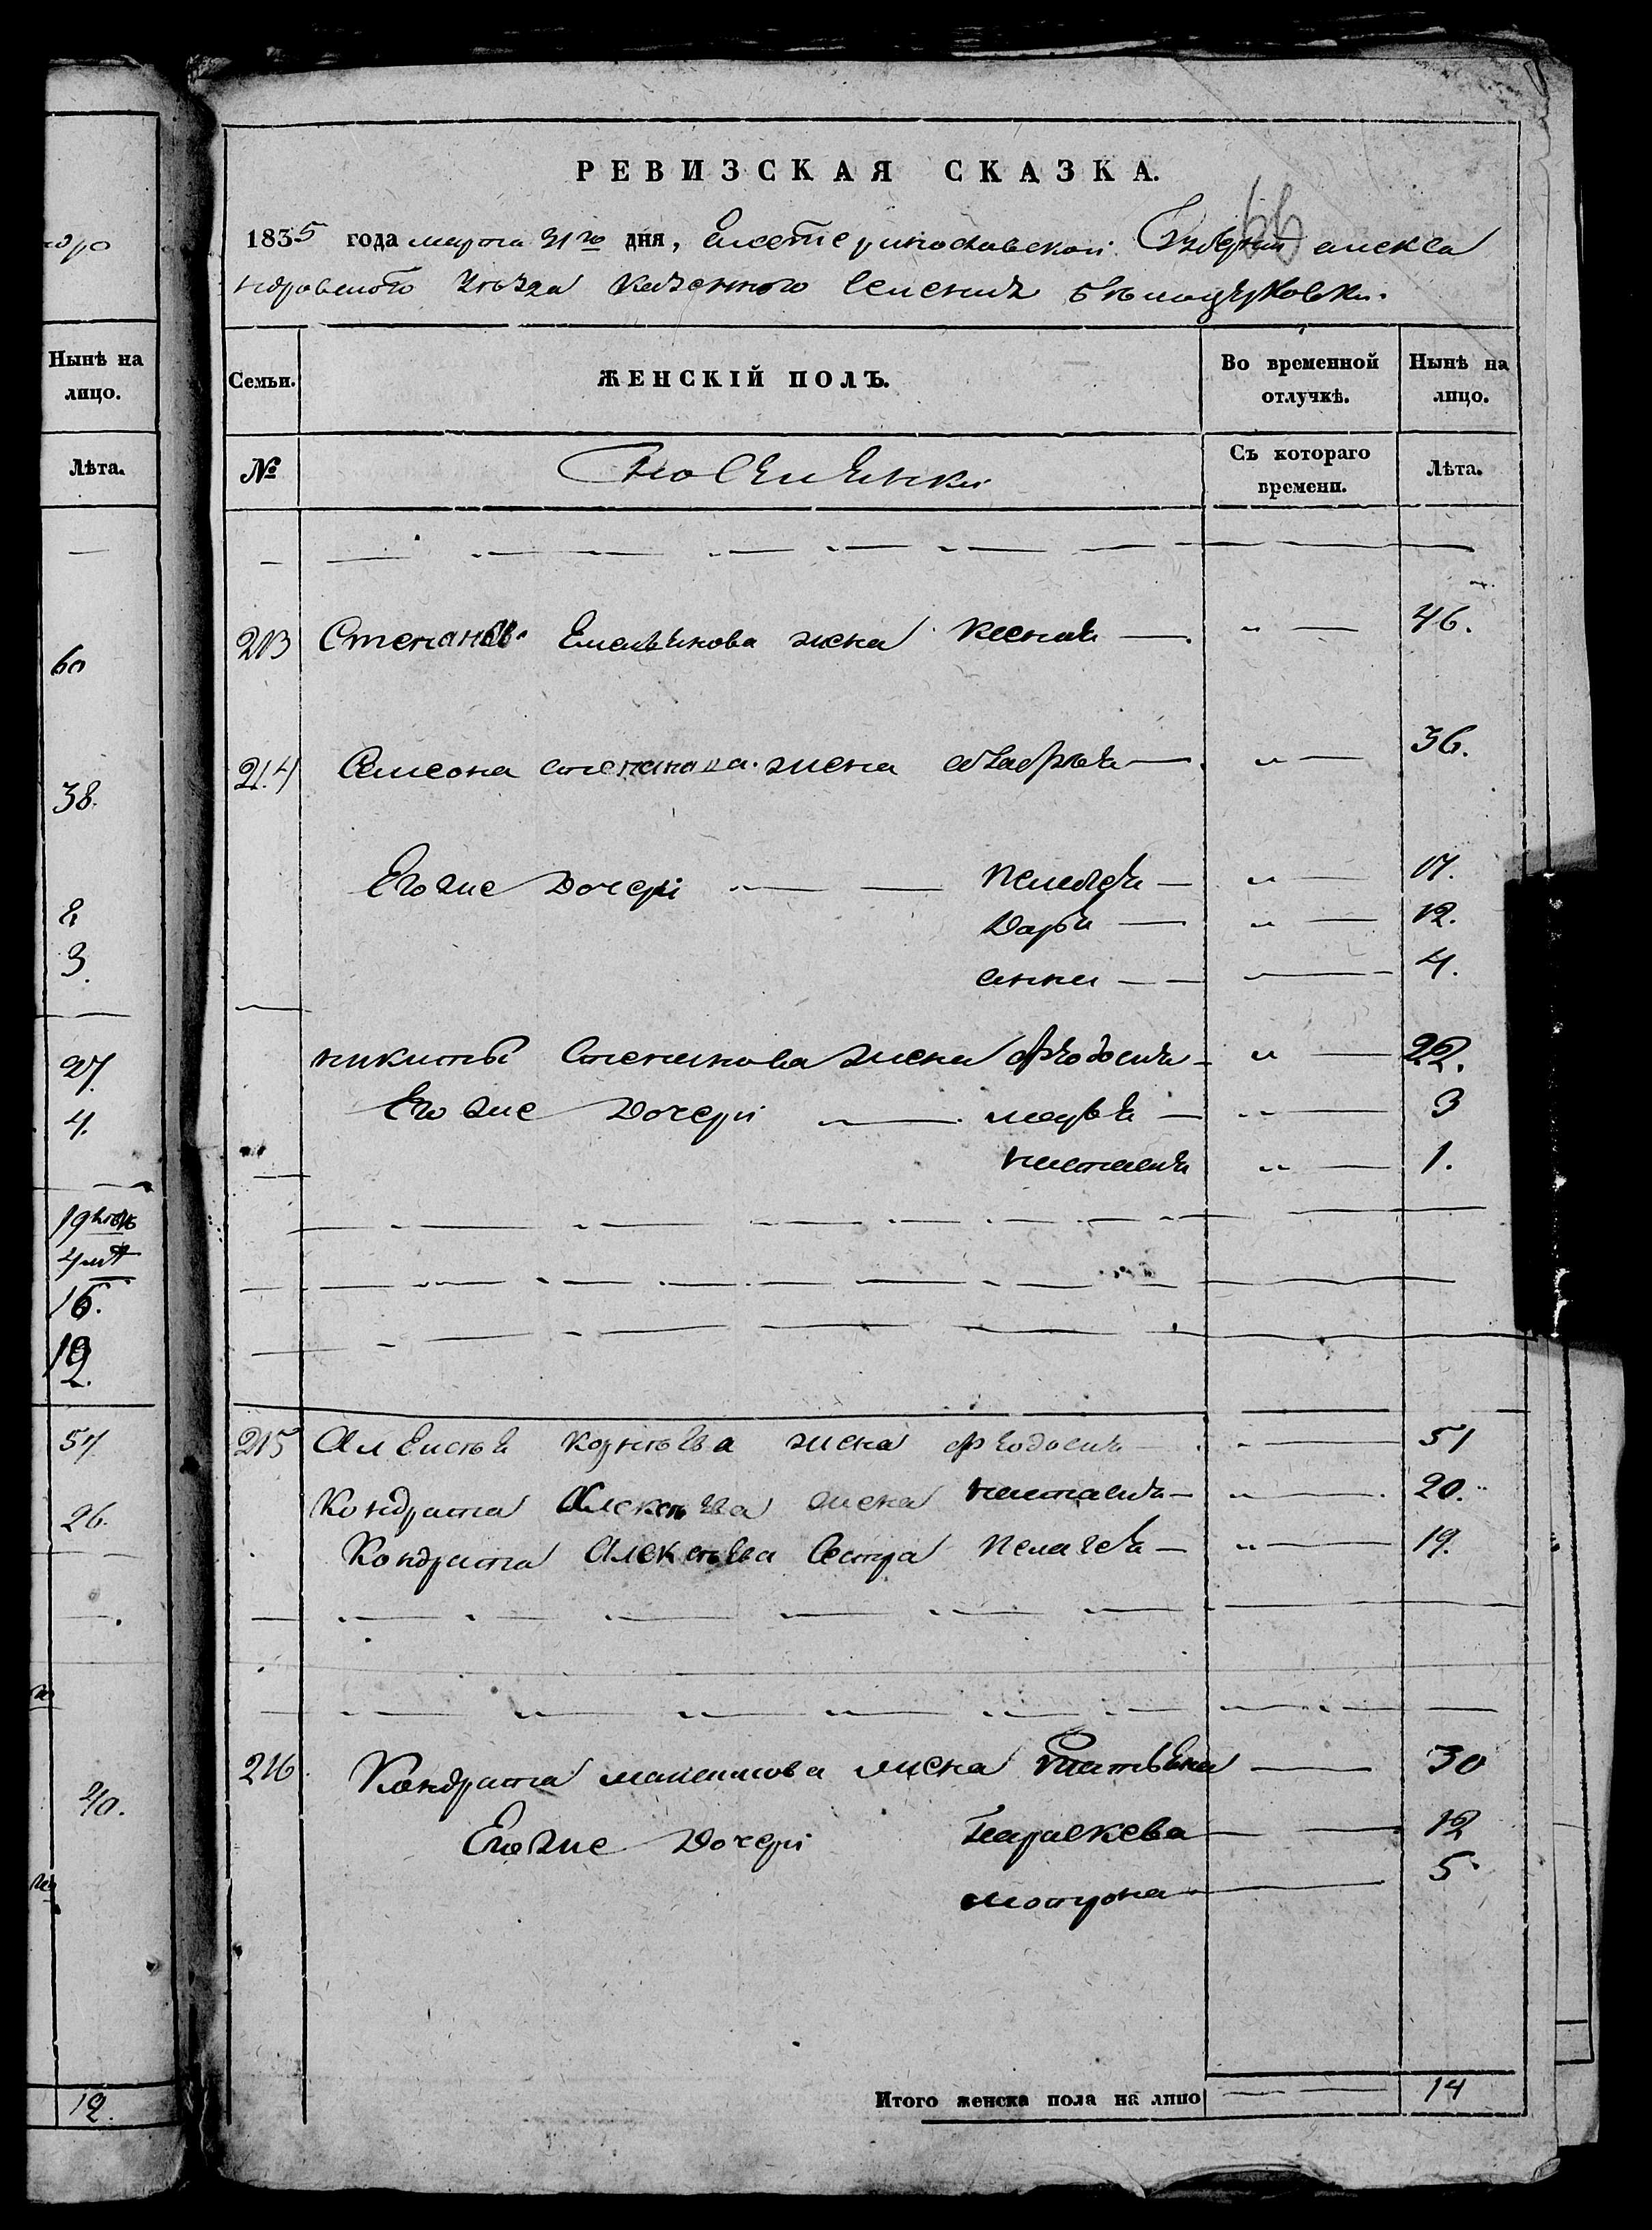 66
РЕВИЗСКАЯ СКАЗКА.
1835 года марта 31го дня, Екатеринославской Губернии алекса
ндровского уѣзда казенного селения
Нынѣ на лицо.
Лѣта.
60
38.
8
3.
27.
4.
16.
12.
54
26.
40.
12.
Семьи. ЖЕНСКІЙ ПОЛЪ. Во временной отлучкѣ. Нынѣ на лицо.
№ поселянки Съ котораго времени. Лѣта.
213 Степана Емельянова жена Ксения — „ — 46.
214 Симеона степанова жена — „ — 36.
Его же дочери „ — Пелагея — „ — 17.
Дарья — „ — 12.
анна — „ — 4.
никиты Степанова жена феодосия — „ — 22.
Его же дочери — марья — „ — 3
настасия „ — 1.
215 Алексея жена феодосия — „ — 51
Кондрата Алексѣева жена настасия — „ — 20.
Кондрата Алексѣева сестра пелагея — „ — 19.
216 Кондрата максимова жена татьяна — 30
Его же дочери Параскева — 12
мотрона — 5
Итого женска пола на лицо — — 14